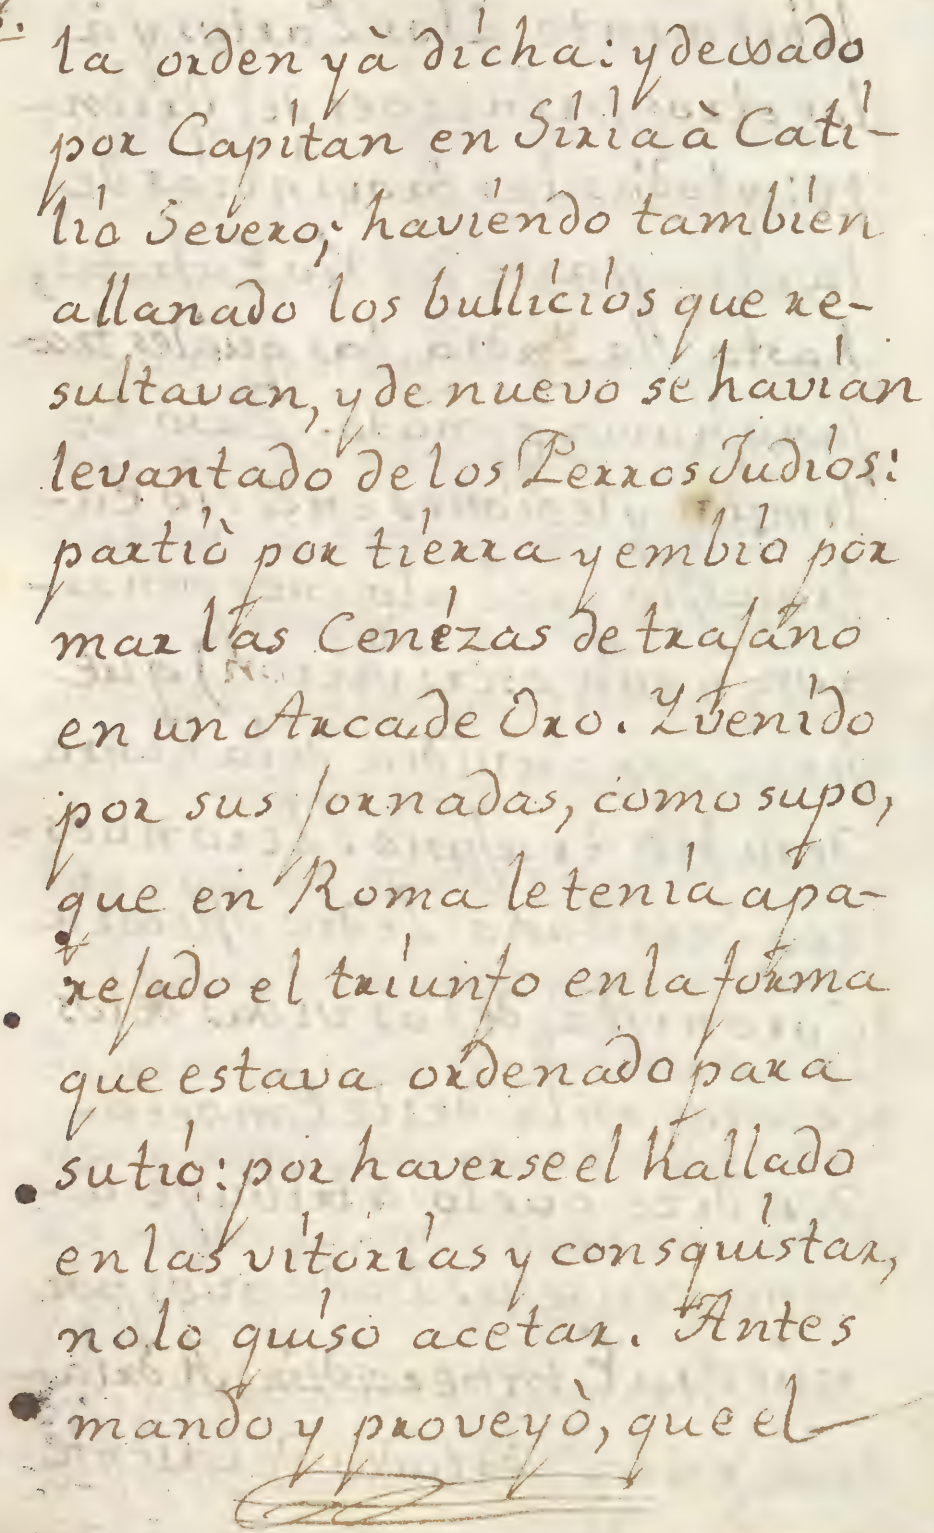 la orden yà dicha: y dexado
por Capitan en Siria à Cati-
lio Severo; haviendo tambien
allanado los bullicios que re-
sultavan, y de nuevo se havian
levantado de los Perros Judios:
partiò por tierra y embio por
mar las Cenizas de trajano
en un Arca de Oro. Y venido
por sus jornadas, como supo,
que en Roma le tenia apa-
rejado el triunfo en la forma
que estava ordenado para
su tio: por haverse el hallado
en las vitorias y consquistar,
no lo quiso acetar. Antes
mando y proveyò, que el